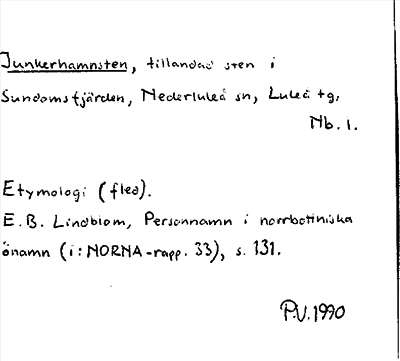 Junkerhamnsten, tillandad sten i
Sundomsfjärden, Nederluleå sn, Luleå tg,
Nb. l.
Etymologi (fled).
E. B. Lindblom, Personnamn i norrbottniska
önamn (i: NORNA-rapp. 33), s. 131.
P.V. 1990